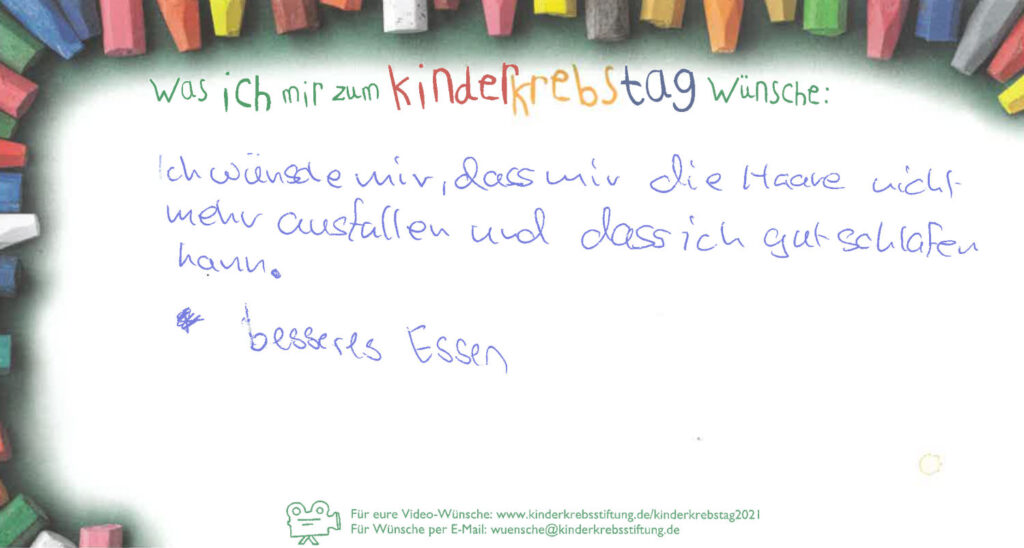 Was ich mir zum kinderkrebstag wünsche:
Ich wünsche mir, dass mir die Haare nicht
mehr ausfallen und dass ich gut schlafen
kann.
* besseres Essen
Für eure Video-Wünsche: www.kinderkrebsstiftung.de/kinderkrebstag2021
Für Wünsche per E-Mail: wuensche@kinderkrebsstiftung.de